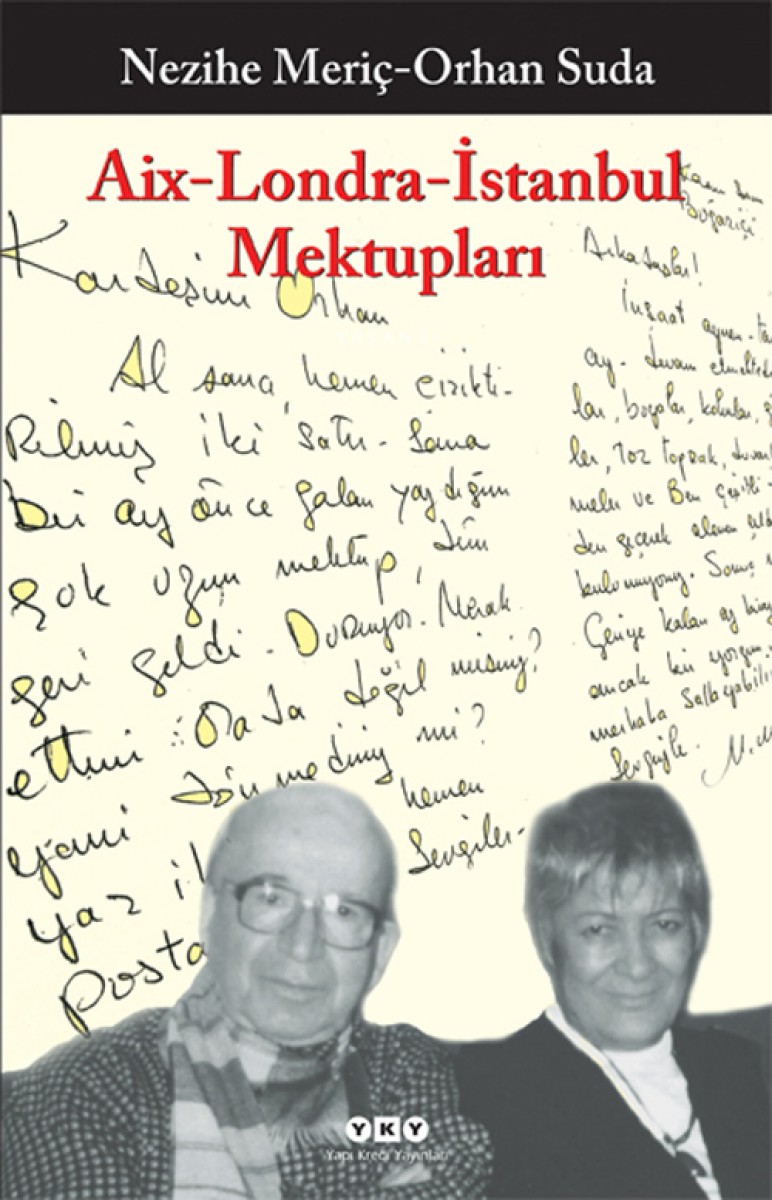 Nezihe Meriç-Orhan Suda
Aix-Londra-İstanbul
Mektupları
Kardeşim Orhan
Al sana, hemen çizikti-
rilmiş iki satır. Sana
bir ay önce falan yazdığım
çok uzun mektup, dün
geri geldi. Duruyor. Merak
ettim: Orada değil misiniz?
yani dönmediniz mi?
hemen
yaz
Sevgiler-
Posta
Boğaziçi
Arkadaşlar!
İnşaat aynen
ay. devam
lar, boyalar,
ler, toz toprak,
meler ve Ben
den geçerek
bulunuyoruz.
Geriye kalan ay
ancak bir yorgun
merhaba
Sevgiyle.
YKY
Yapı Kredi Yayınları